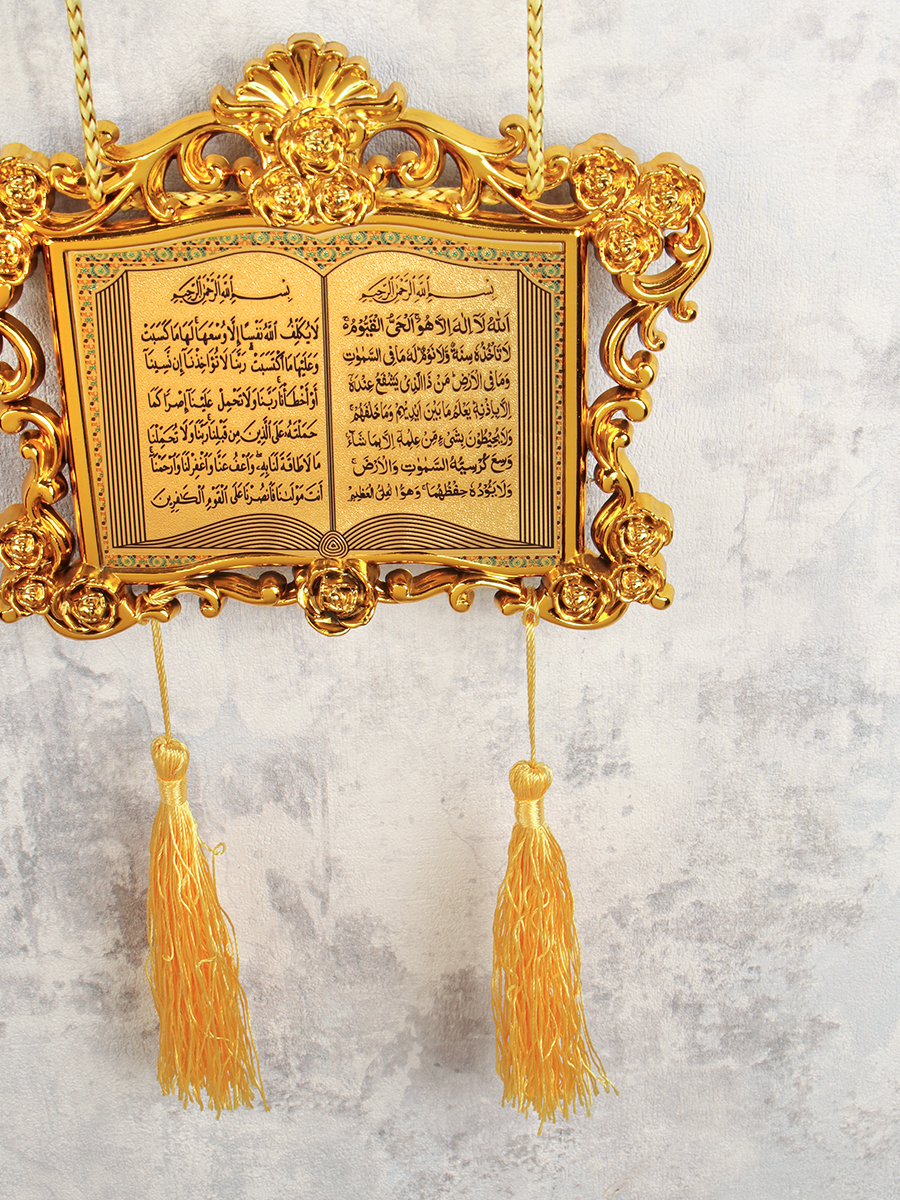 بِسْمِ اللهِ الرَّحْمٰنِ الرَّحِيْمِ
اَللهُ لَآ اِلٰهَ اِلَّا هُوَ ۚ اَلْحَيُّ الْقَيُّوْمُ ۚ
لَا تَأْخُذُهٗ سِنَةٌ وَّلَا نَوْمٌ ؕ لَهٗ مَا فِى السَّمٰوٰتِ
وَمَا فِى الْاَرْضِ ؕ مَنْ ذَا الَّذِىْ يَشْفَعُ عِنْدَهٗۤ
اِلَّا بِاِذْنِهٖ ؕ يَعْلَمُ مَا بَيْنَ اَيْدِيْهِمْ وَمَا خَلْفَهُمْ ۚ
وَلَا يُحِيْطُوْنَ بِشَىْءٍ مِّنْ عِلْمِهٖۤ اِلَّا بِمَا شَآءَ ۚ
وَسِعَ كُرْسِيُّهُ السَّمٰوٰتِ وَالْاَرْضَ ۚ
وَلَا يَؤُدُهٗ حِفْظُهُمَا ۚ وَهُوَ الْعَلِىُّ الْعَظِيْمُ
بِسْمِ اللهِ الرَّحْمٰنِ الرَّحِيْمِ
لَا يُكَلِّفُ اللهُ نَفْسًا اِلَّا وُسْعَهَا ؕ لَهَا مَا كَسَبَتْ
وَعَلَيْهَا مَا اكْتَسَبَتْ ؕ رَبَّنَا لَا تُؤَاخِذْنَآ اِنْ نَّسِيْنَآ
اَوْ اَخْطَأْنَا ۚ رَبَّنَا وَلَا تَحْمِلْ عَلَيْنَآ اِصْرًا كَمَا
حَمَلْتَهٗ عَلَى الَّذِيْنَ مِنْ قَبْلِنَا ۚ رَبَّنَا وَلَا تُحَمِّلْنَا
مَا لَا طَاقَةَ لَنَا بِهٖ ۚ وَاعْفُ عَنَّا وَاغْفِرْ لَنَا وَارْحَمْنَا ۚ
اَنْتَ مَوْلٰىنَا فَانْصُرْنَا عَلَى الْقَوْمِ الْكٰفِرِيْنَ